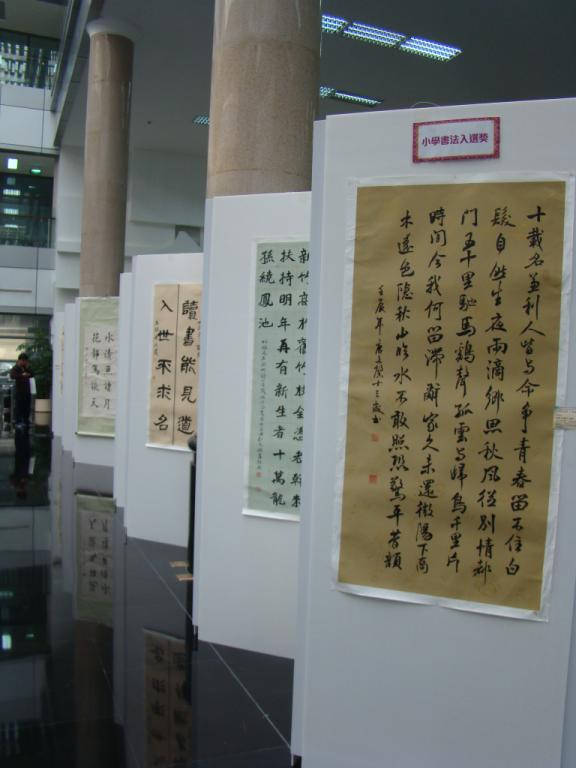 小學書法入選獎
十載名兼利人皆与命爭青春留不住白
髮自然生夜雨滴鄉思秋風從別情都
門五十里馳馬鷄聲孤雲与歸鳥千里片
時間念我何留滯辭家久未還微陽下喬
木遠色隱秋山臨水不敢照恐驚平昔顏
壬辰年
新竹高於舊竹枝全憑老幹為
扶持明年再有新生者十萬龍
孫繞鳳池
讀書能見道
入世不求名
水清魚讀月
花靜鳥談天